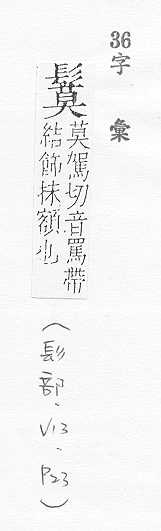 36字彙
鬕
莫駕切音罵帶
結飾抹額也
(髟部、V13、P23)